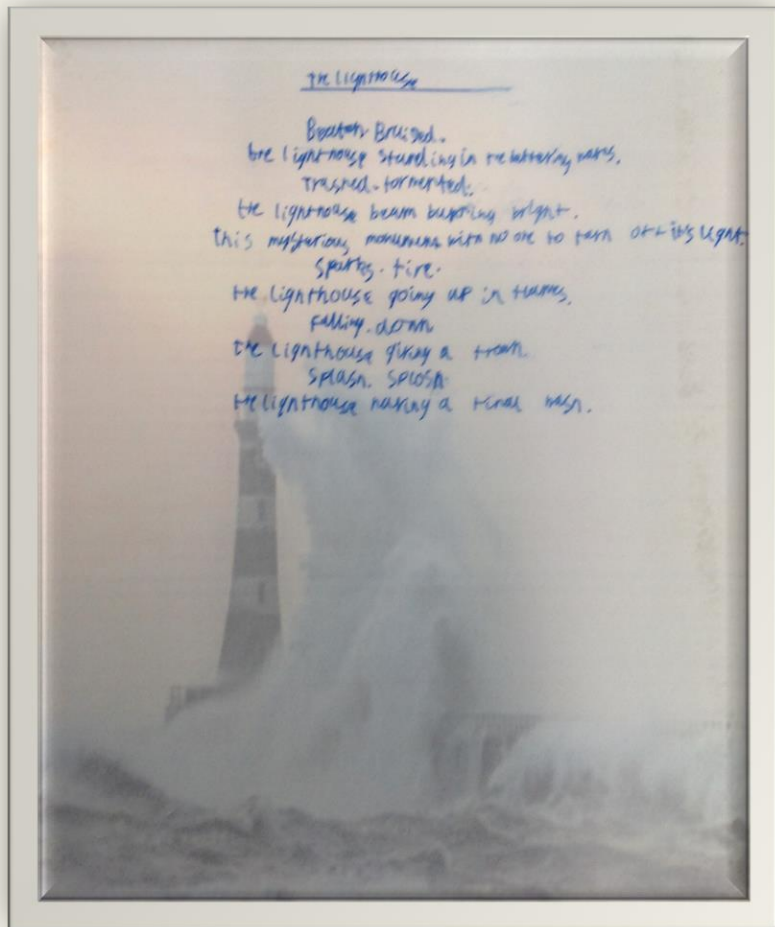 The Lighthouse
Beaten Bruised.
The lighthouse standing in the battering waves.
Trashed. tormented.
The lighthouse beam burning bright.
This mysterious monument with no one to turn off its light.
Sparks. fire.
The lighthouse going up in flames.
Falling. down
The lighthouse giving a
Splash. Splosh
The lighthouse having a final wash.